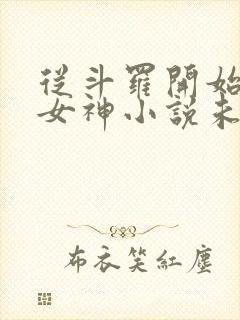 從斗羅開始
女神小說未
布衣笑紅塵